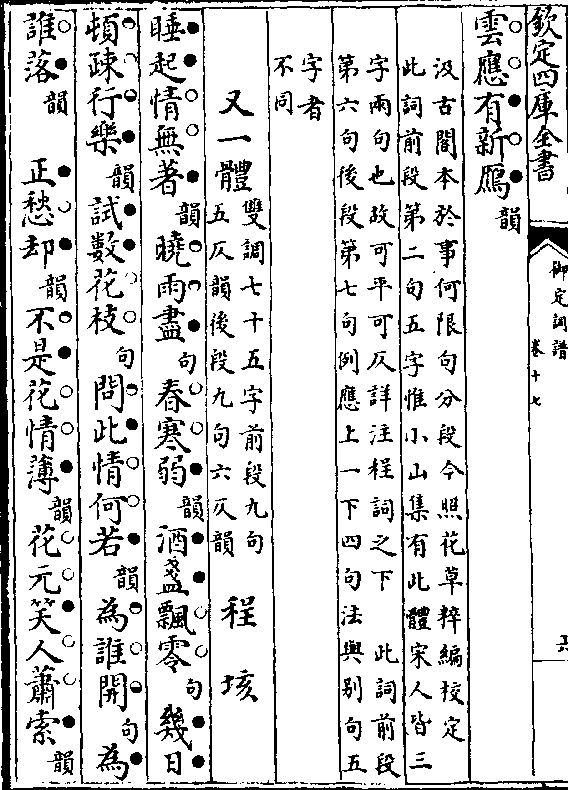 欽定四庫全書
御定詞譜
卷十七
雲應有新鴈韻
汲古閣本於事何限句分段今照花草粹編校定
此詞前段第二句五字惟小山集有此體宋人皆三
字兩句也故可平可仄詳注程詞之下　此詞前段
第六句後段第七句例應上一下四句法與别句五
字者
不同
又一體雙調七十五字前段九句
五仄韻後段九句六仄韻　程垓
睡起情無著韻曉雨盡句春寒弱韻酒盞飄零句幾日
頓疎行樂韻試數花枝句問此情何若韻為誰開句為
誰落韻　正愁却韻不是花情薄韻花元笑人蕭索韻